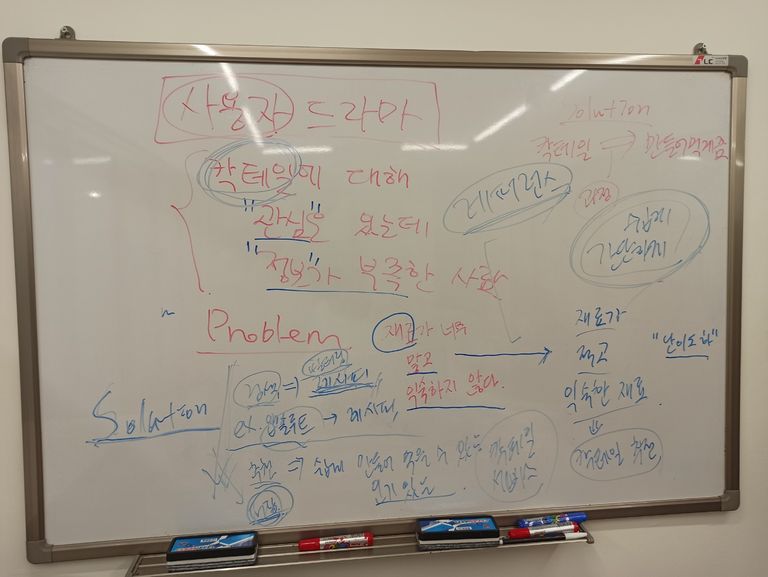 사용자 드라마
칵테일에 대해
"관심"은 있는데
"정보"가 부족한 사람
Solution
칵테일 → 만들어먹게끔
과정
레퍼런스
쉽게
간단하게
Problem
재료가 너무
많고
익숙하지 않다.
재료가
적고
익숙한 재료
"난이도 하"
칵테일 추천
Solution
검색 ⇒ 레시피
ex. 앱솔루트 → 레시피,
추천 ⇒ 쉽게 만들어 먹을 수 있는
인기 있는
칵테일
LC